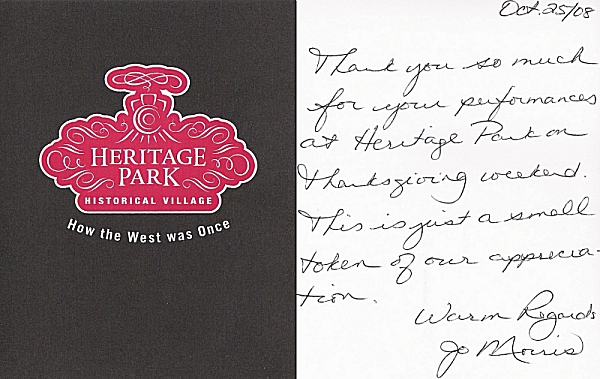 HERITAGE
PARK
HISTORICAL VILLAGE
How the West was Once
Oct. 25/08
Thank you so much
for your performances
at Heritage Park on
Thanksgiving weekend.
This is just a small
token of our apprecia-
tion.
Warm Regards
Jo Morris